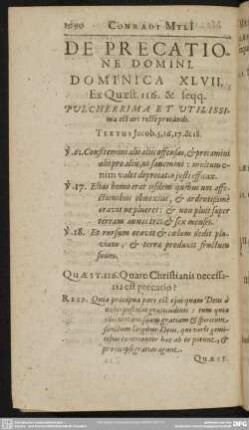 1090 CONRADI MYLI
DE PRECATIO-
NE DOMINI.
DOMINICA XLVII.
Ex Quæst. 116. & seqq.
PULCHERRIMA ET UTILISSI-
ma est ars recte precandi.
TEXTUS Jacob. 5, 16, 17. & 18.
℣. 16. Confitemini alii aliis offensas, & precamini
alii pro aliis, ut sanemini: multum e-
nim valet deprecatio justi efficax.
℣. 17. Elias homo erat iisdem quibus nos affe-
ctionibus obnoxius, &
oravit ne plueret: & non pluit super
terram annos tres & sex menses.
℣. 18. Et rursum oravit & cœlum dedit plu-
viam, & terra produxit fructum
suum.
QUÆST. 116. Quare Christianis necessa-
ria est precatio?
RESP. Quia præcipua pars est ejus quam Deus à
nobis postulat gratitudinis: tum quia
suam gratiam & Spiritum
sanctum largitur Deus, qui veris gemi-
tibus hæc ab eo petunt, &
gratias agunt.
QUÆST.